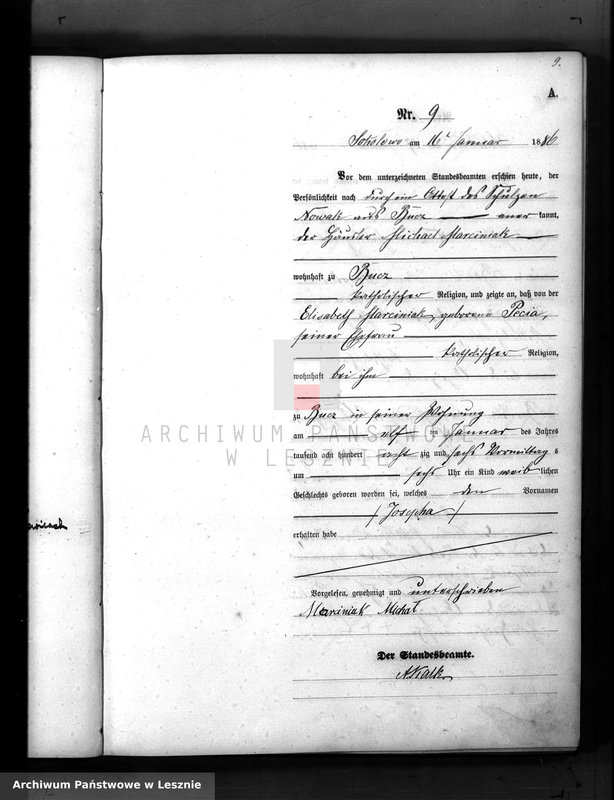 9.
A.
Nr. 9
Sokolowo am 16t Januar 1886
Vor dem unterzeichneten Standesbeamten erschien heute, der
Persönlichkeit nach durch ein Attest des Schulzen
Nowak aus Bucz aner kannt,
der Häusler Michael Marciniak
wohnhaft zu Bucz
katholischer Religion, und zeigte an, daß von der
Elisabeth Marciniak, geborene Pecia,
seiner Ehefrau
katholischer Religion,
wohnhaft bei ihm
zu Bucz in seiner Wohnung
am elf ten Januar des Jahres
tausend acht hundert acht zig und sechs Vormittag s
um sechs Uhr ein Kind weib lichen
Geschlechts geboren worden sei, welches den Vornamen
Josepha
erhalten habe
Vorgelesen, genehmigt und unterschrieben
Marciniak Michał
Der Standesbeamte.
AKalk
ARCHIWUM PAŃSTWOWE
W LESZNIE
Archiwum Państwowe w Lesznie